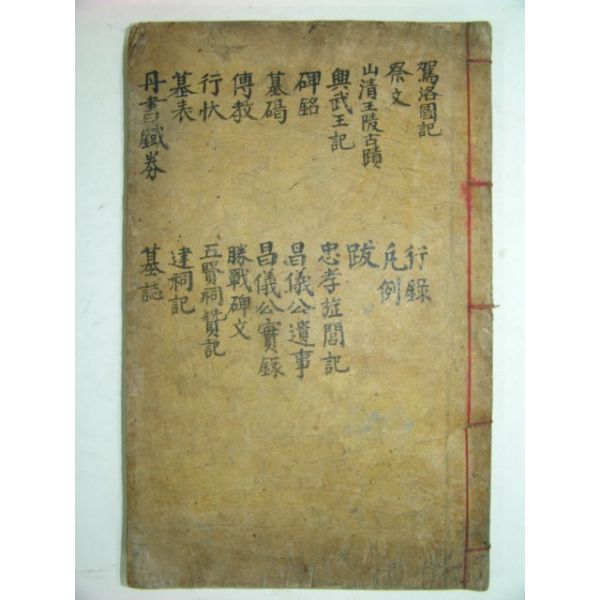 駕洛國記
祭文
山清王陵古蹟
興武王記
碑銘
墓碣
傳教
行狀
墓表
丹書鐵券
行錄
凡例
跋
忠孝旌閭記
昌儀公遺事
昌儀公實錄
勝戰碑文
五賢祠贊記
建祠記
墓誌